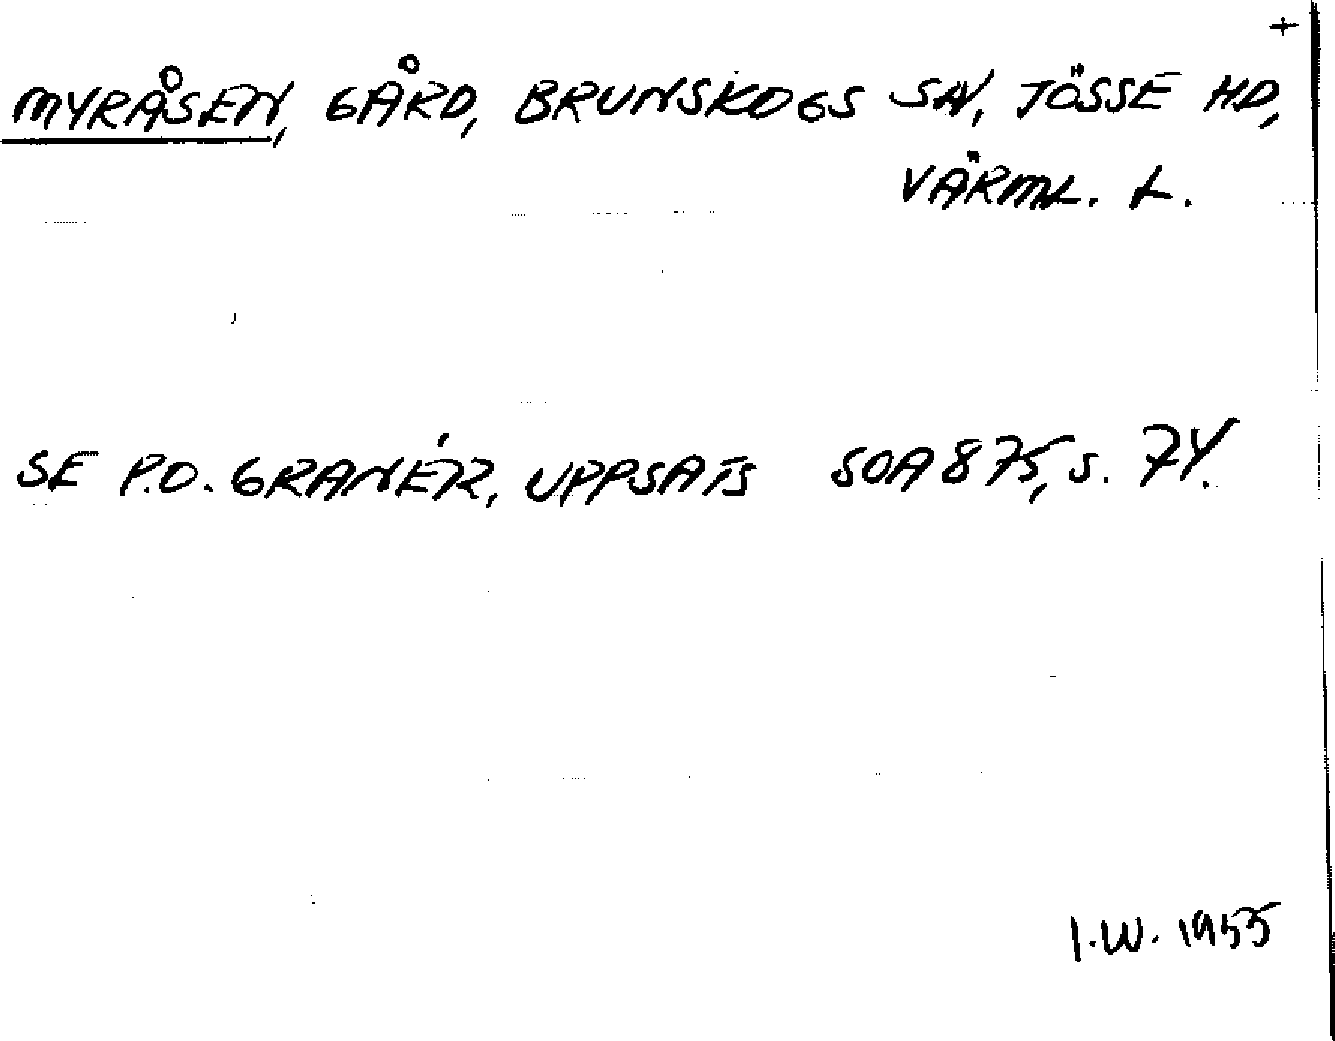 +
MYRÅSEN, GÅRD, BRUNSKOGS SN, JÖSSE HD,
VÄRML. L.
SE P.O. GRANÉR, UPPSATS SOA 875, S. 74.
I.W. 1955